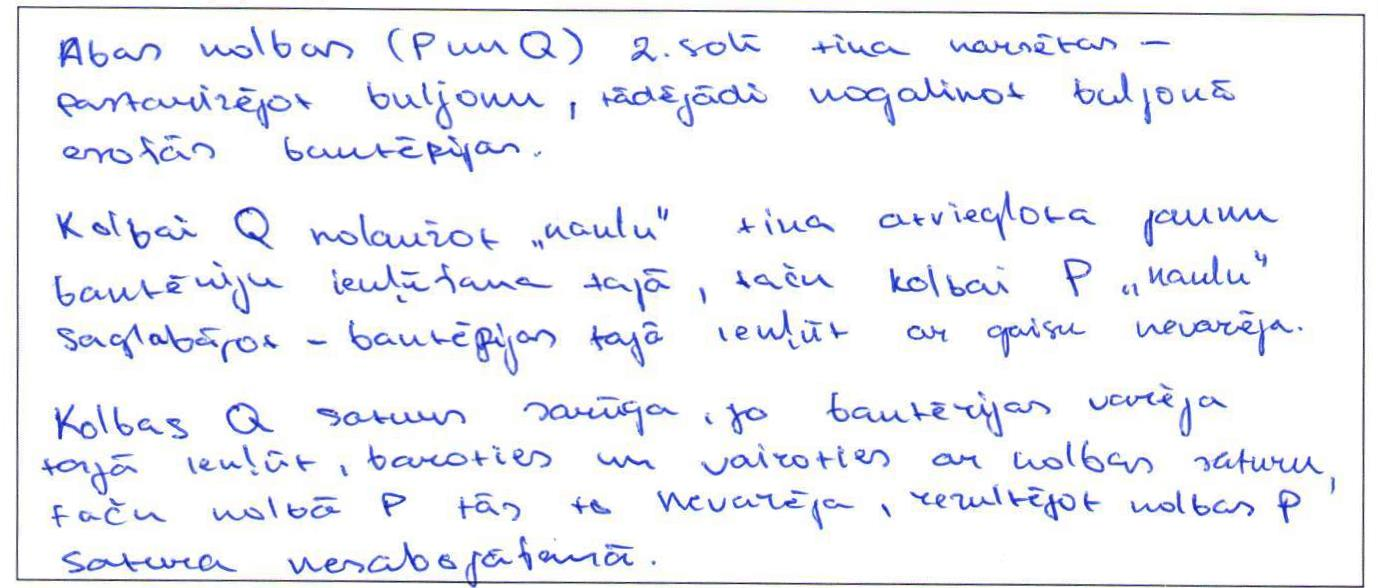 Abas kolbas (P un Q) 2. solī tika karsētas –
pastarizējot buljonu, tādējādi nogalinot buljonā
esošās baktērijas.
Kolbai Q nolaužot „kaklu" tika atvieglota jaunu
baktēriju iekļūšana tajā, taču kolbai P „kaklu"
saglabājot – baktērijas tajā iekļūt ar gaisu nevarēja.
Kolbas Q saturs sarūga, jo baktērijas varēja
tajā iekļūt, baroties un vairoties ar kolbas saturu,
taču kolbā P tās to nevarēja, rezultējot kolbas P
satura nesabojāšanā.